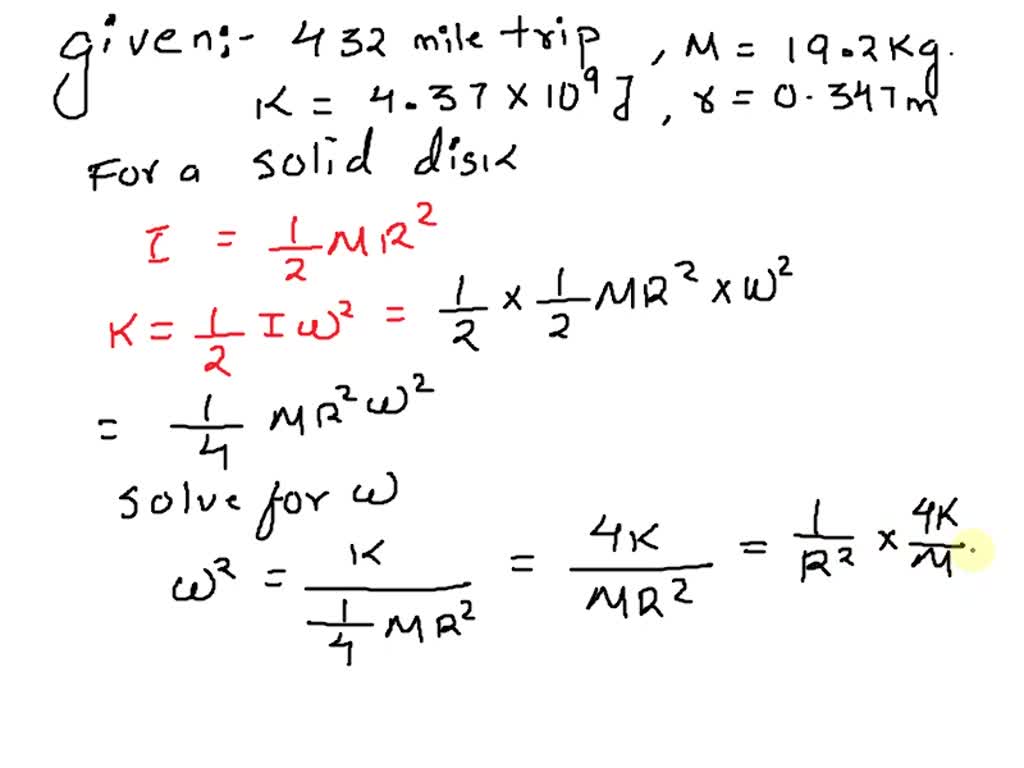 given:- 432 mile trip, M = 19.2Kg.
K = 4.37 × 10⁹ J, r = 0.347m
For a solid disk
I = 1/2 MR²
K = 1/2 I ω² = 1/2 × 1/2 MR² × ω²
= 1/4 MR²ω²
solve for ω
ω² = K / (1/4 MR²) = 4K / MR² = 1/R² × 4K/M.